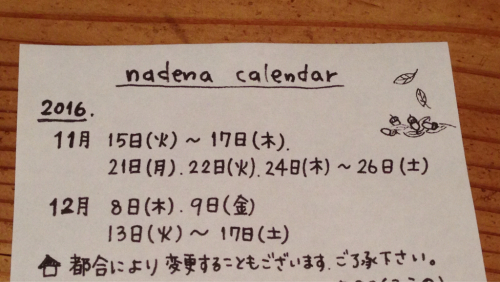 nadena calendar
2016.
11月 15日(火)～17日(木).
21日(月).22日(火).24日(木)～26日(土)
12月 8日(木).9日(金)
13日(火)～17日(土)
都合により変更することもございます.ご了承下さい。